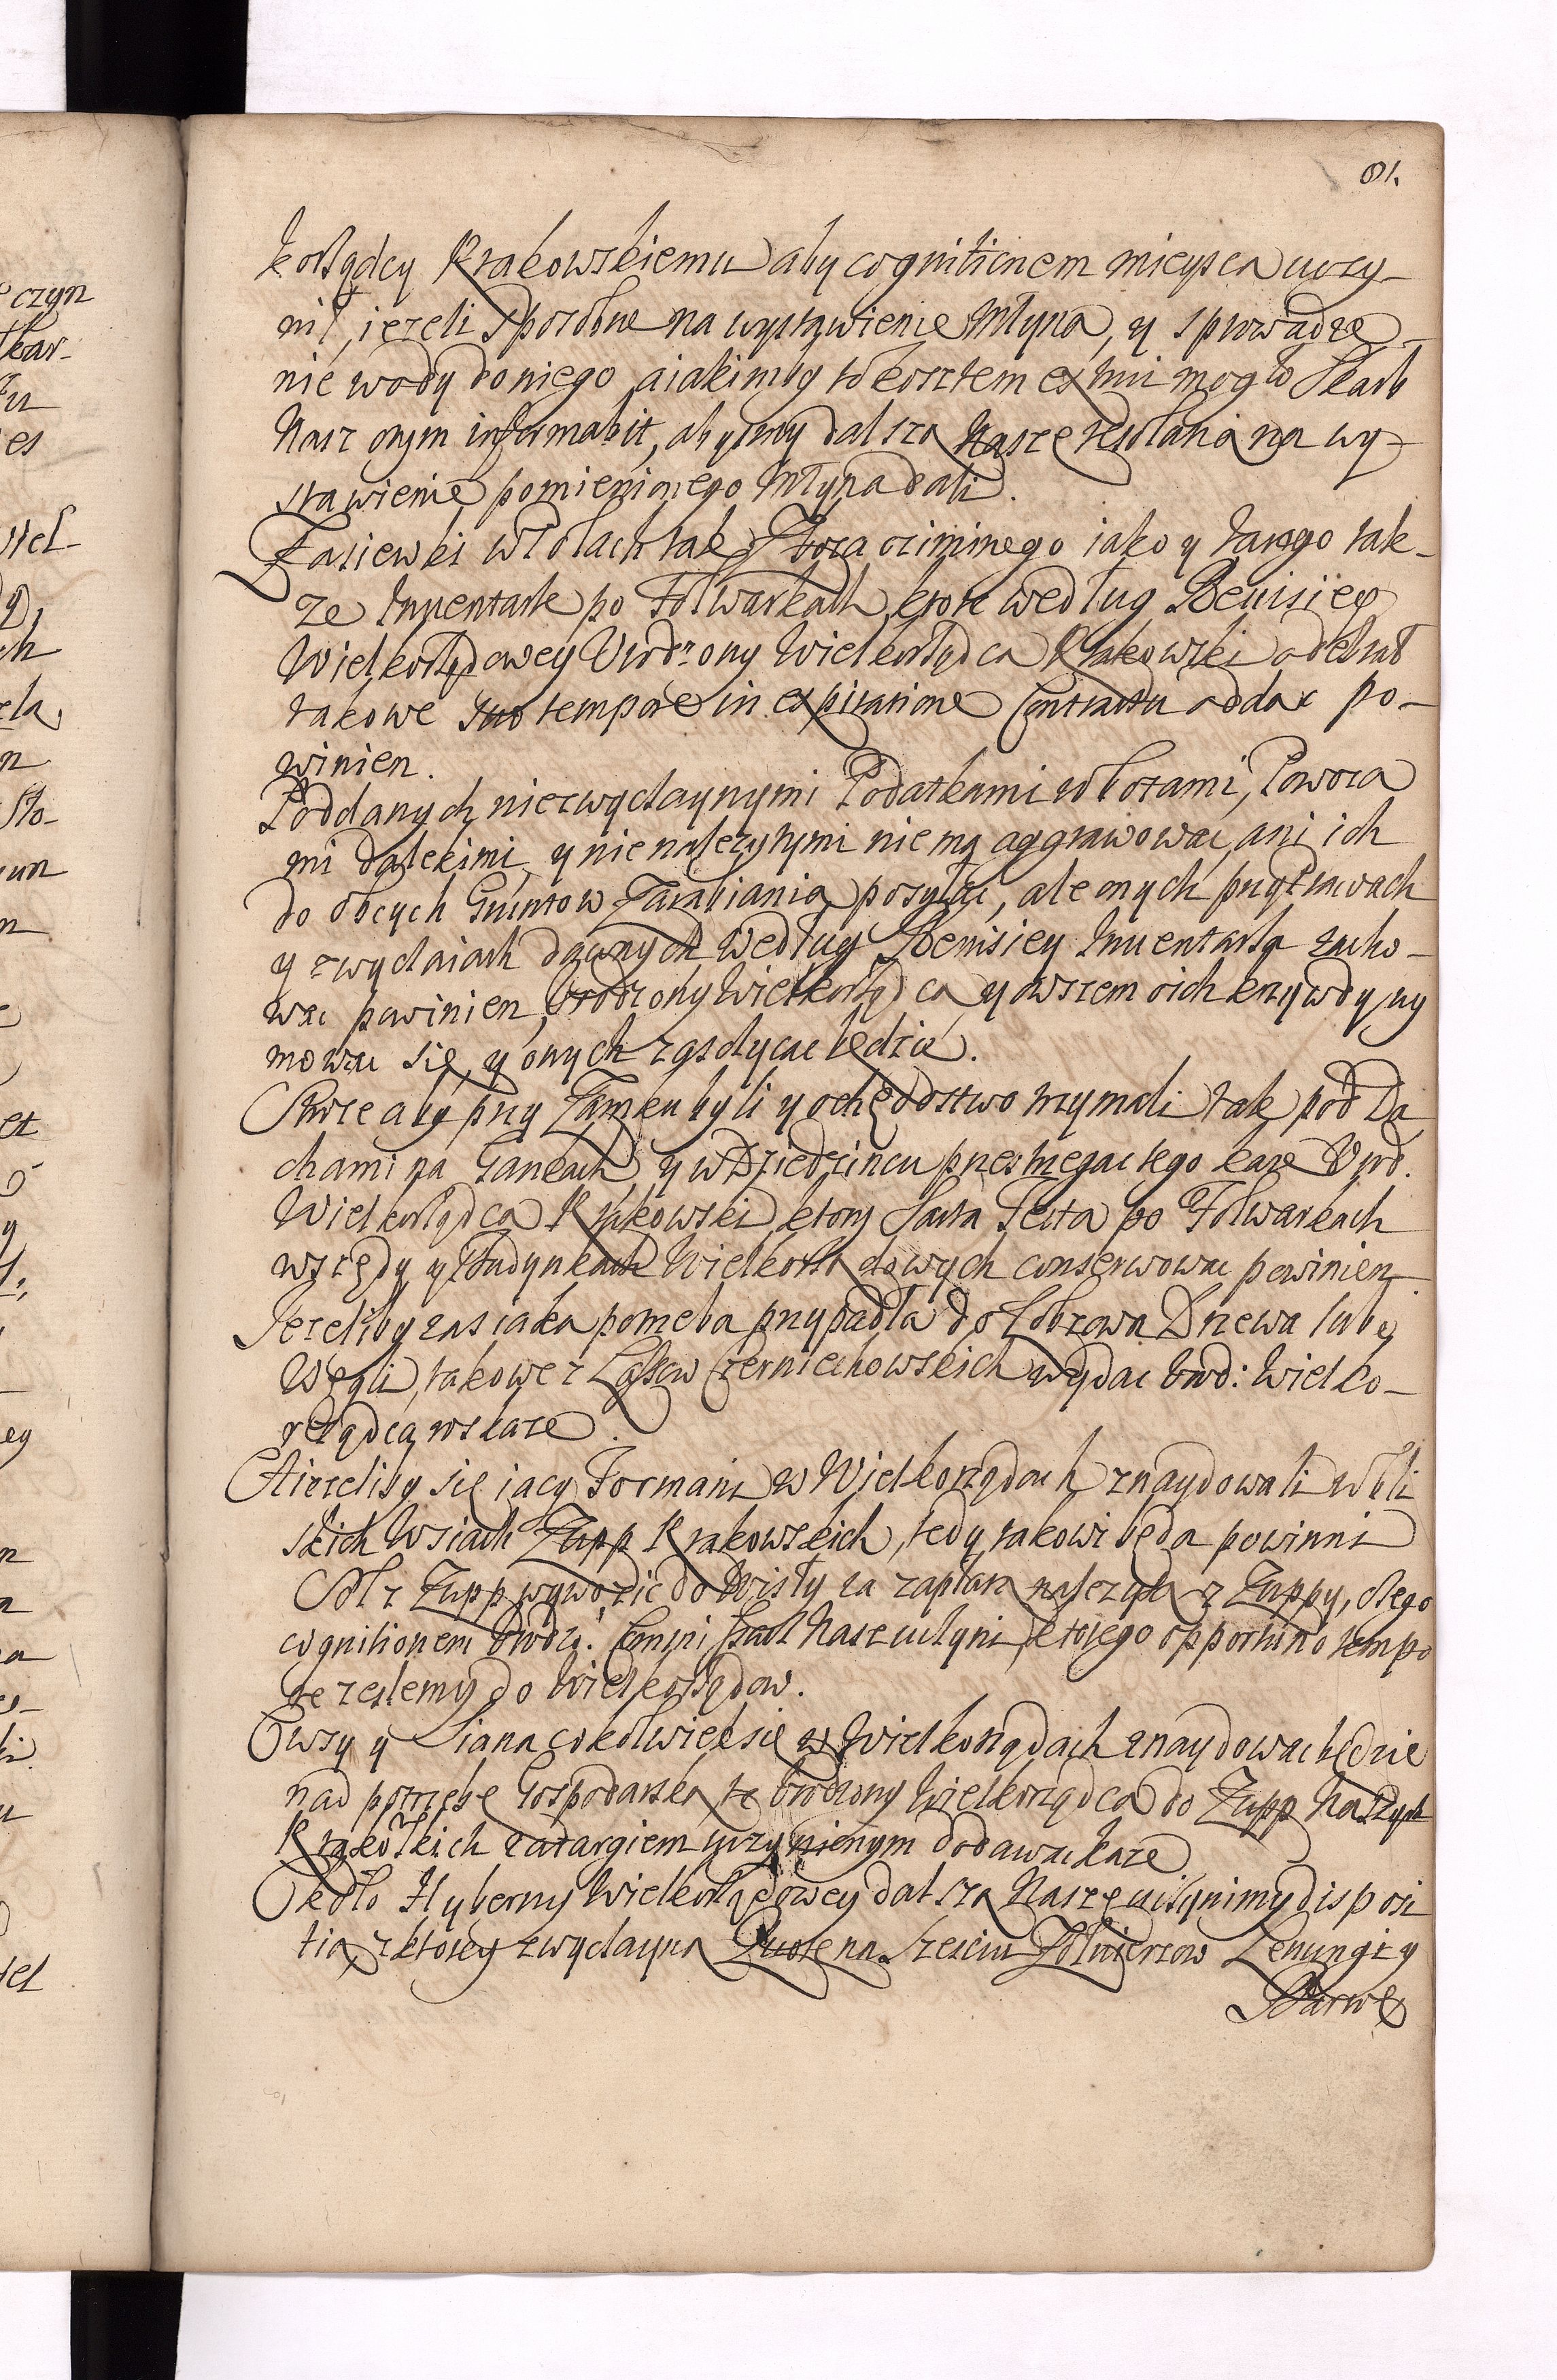 81.
korządcy Krakowskiemu aby cognitionem mieysca uczy-
nił, iezeli sposobne na wystawienie Młyna, y sprowadze-
nie wody do niego, a iakimby to kosztem ex[...] mogło Skarb
Nasz onym informabit, abysmy dalszą Naszę resolutią na wy-
stawienie pomienionego Młyna dali.
Zasiewki w Polach tak Zboza oziminego iako y Jarego tak-
ze Inwentarze po Folwarkach, ktore według Rewisiey
Wielkorządowey Urodzony Wielkorządca Krakowski odebrał
takowe suo tempore in expiratione Contractu oddac po-
winien.
Poddanych niezwyczaynymi Podatkami robotami, Powoza
mi dalekimi, y nienalezytymi nie ma aggrawowac, ani ich
do obcych Gruntow Zarabiania posyłac, ale onych przy Prawach
y zwyczaiach dawnych według Rewisiey Inwentarza zacho-
wac powinien, Urodzony Wielkorządca, y owszem o ich krzywdy uy
mowac się, y onych zaszczycac będzie.
Stroze aby przy Zamku byli y ochędostwo trzymali tak pod Da
chami na Gankach, y w Dziedzincu przestrzegac tego kaze Urod.
Wielkorządca Krakowski, ktory Sarta Tecta po Folwarkach
wszędy y Budynkach Wielkorządowych conserwowac powinien.
Iezeliby zas iaka potrzeba przypadła do Łobzowa Drzewa lub
Węgli, takowe z Lasow Czerniechowskich wydac Urod: Wielko-
rządca wskaze.
A iezeliby się iacy Formani w Wielkorządach znaydowali w bli
skich Wsiach Zupp Krakowskich, tedy takowi będą powinni
Sol z Zupp wywozic do Wisły za zapłatą nalezytą z Zuppy, o tego
cognitionem Urodz: [...] Skarb Nasz uczyni, ktorego opportuno tempo
re zeslemy do Wielkorządow.
Owsy y Siana cokolwiek się w Wielkorządach znaydowac będzie
nad potrzebę Gospodarską te Urodzony Wielkorządca do Zupp Naszych
Krakowskich za targiem uczynionym dodawac kaze
Około Hyberny Wielkorządowey dalszą Naszę uczynimy disposi
tią, z ktorey zwyczayną Quotę na Szesciu Zołnierzow Lenungi y
Barwę